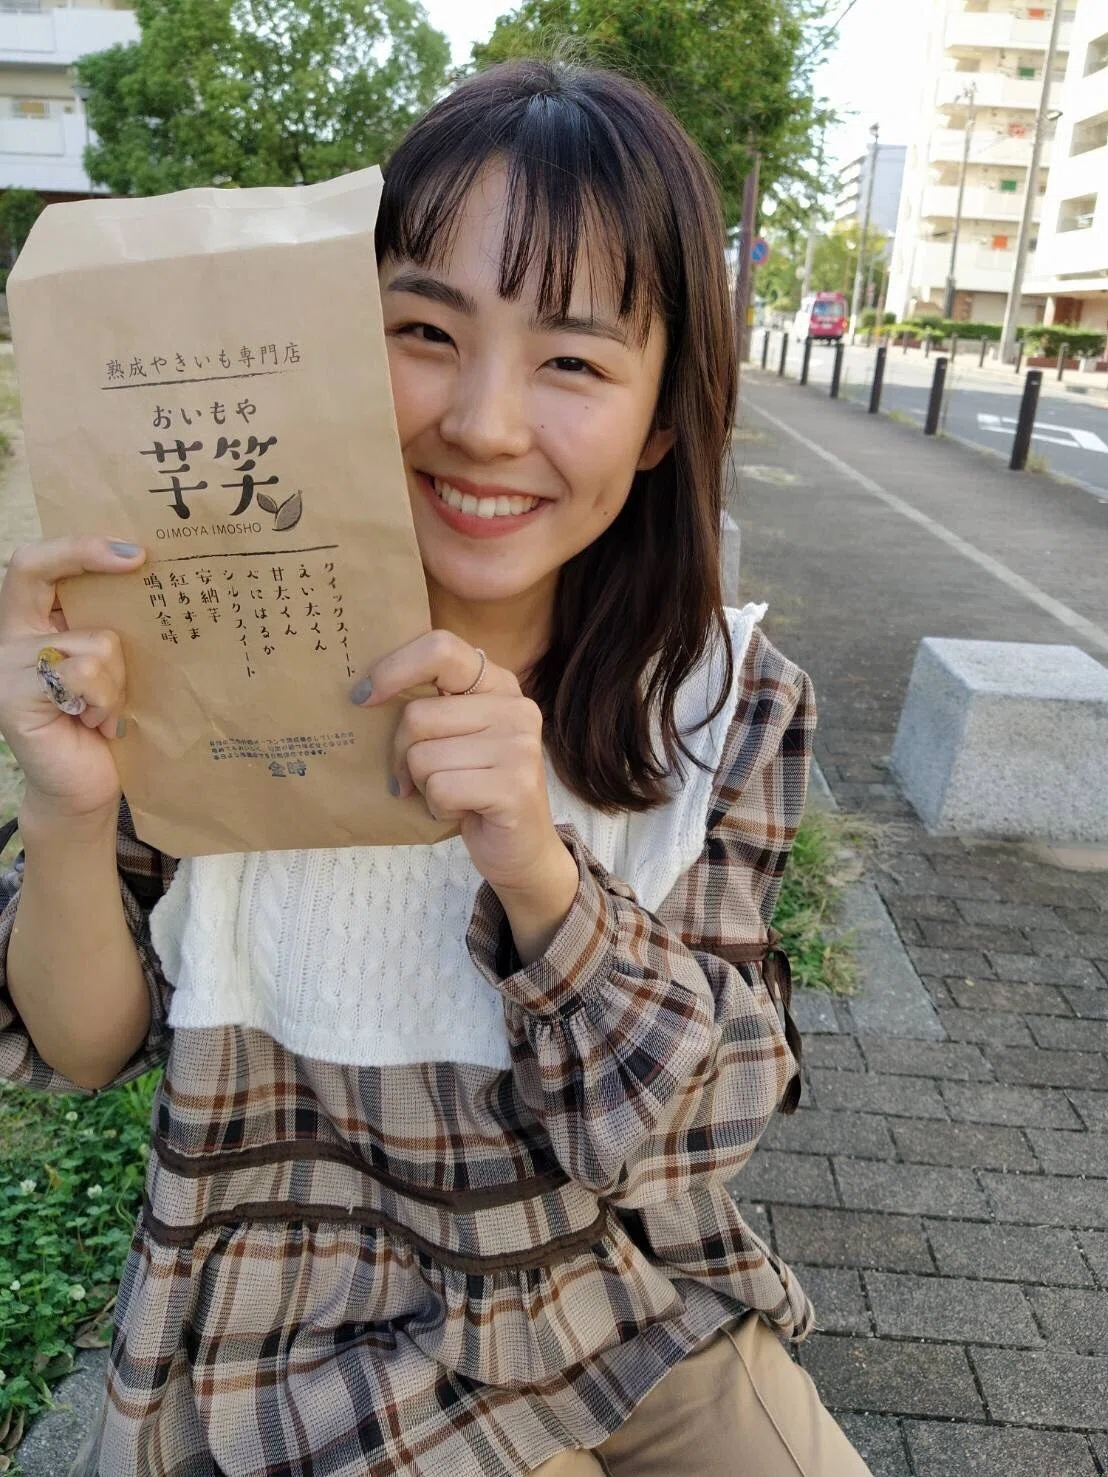 熟成やきいも専門店
おいもや
芋笑
OIMOYA IMOSHO
クイックスイート
えい太くん
甘太くん
べにはるか
シルクスイート
安納芋
紅あずま
鳴門金時
金時